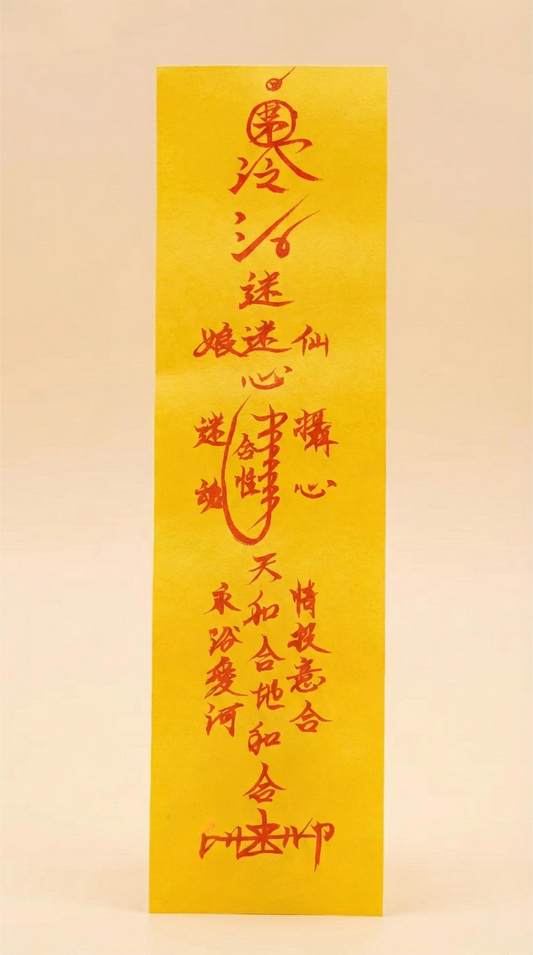 迷迷心
仙
娘
攝心
合性
迷魂
情投意合
天和合地和合
永浴愛河